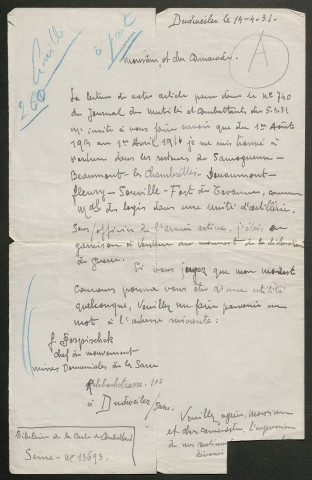 Dudweiler le 14-4-31.
à part
A
Monsieur et cher Camarade,
La lecture de votre article paru dans le N° 740
du Journal des Mutilés et Combattants du 5.4.31
m'invite à vous faire savoir que du 1er Août
1914 au 1er Avril 1916 je me suis trouvé à
Verdun dans les secteurs de Samogneux -
Beaumont - les Chambrettes - Douaumont -
Fleury - Souville - Fort de Tavannes, comme
Mal des logis dans une unité d'artillerie.
Sous/officier de l'armée active, j'étais en
garnison à Verdun au moment de la déclaration
de guerre.
Si vous jugez que mon modeste
Concours pourra vous être d'une utilité
quelconque, Veuillez me faire parvenir un
mot à l'adresse suivante :
chef de mouvement
mines Domaniales de la Sarre
102
à Dudweiler/Sarre
Veuillez agréer, Monsieur
et cher camarade, l'expression
de mes sentiments
dévoués
Titulaire de la Carte du Combattant
Seine - N° 13693.